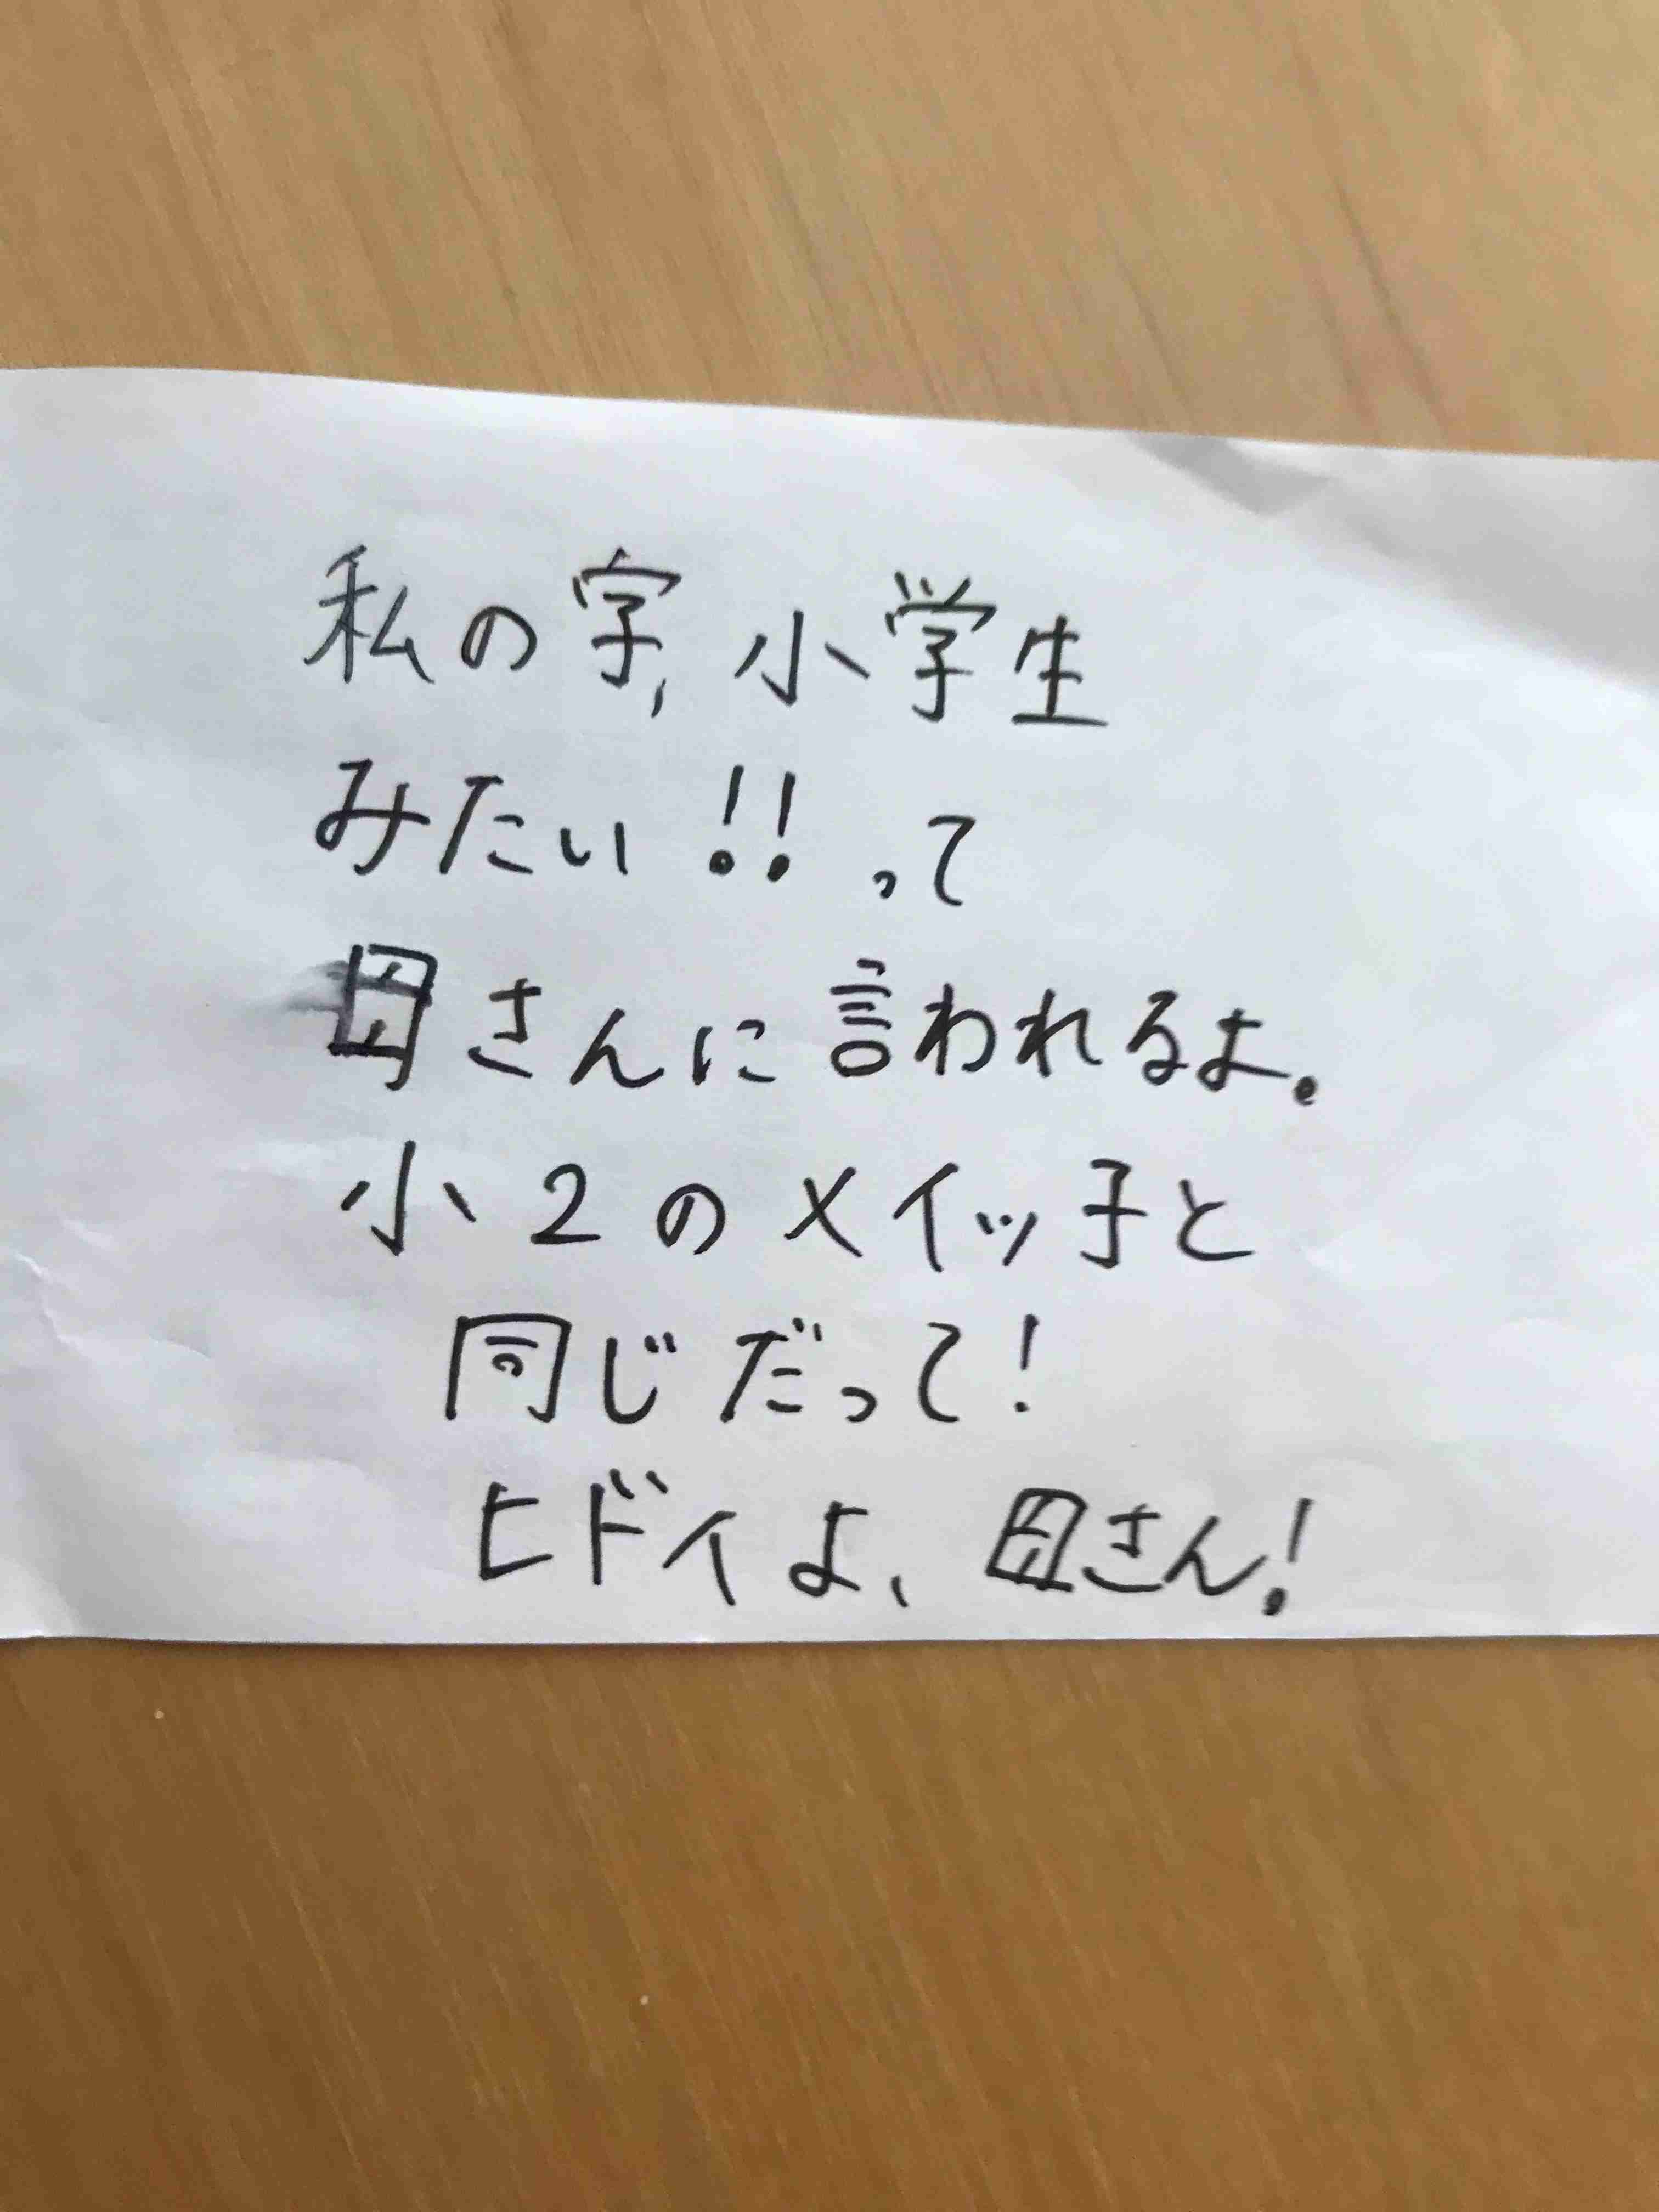 私の字、小学生
みたい!!って
母さんに言われるよ。
小2のメイッ子と
同じだって!
ヒドイよ、母さん!